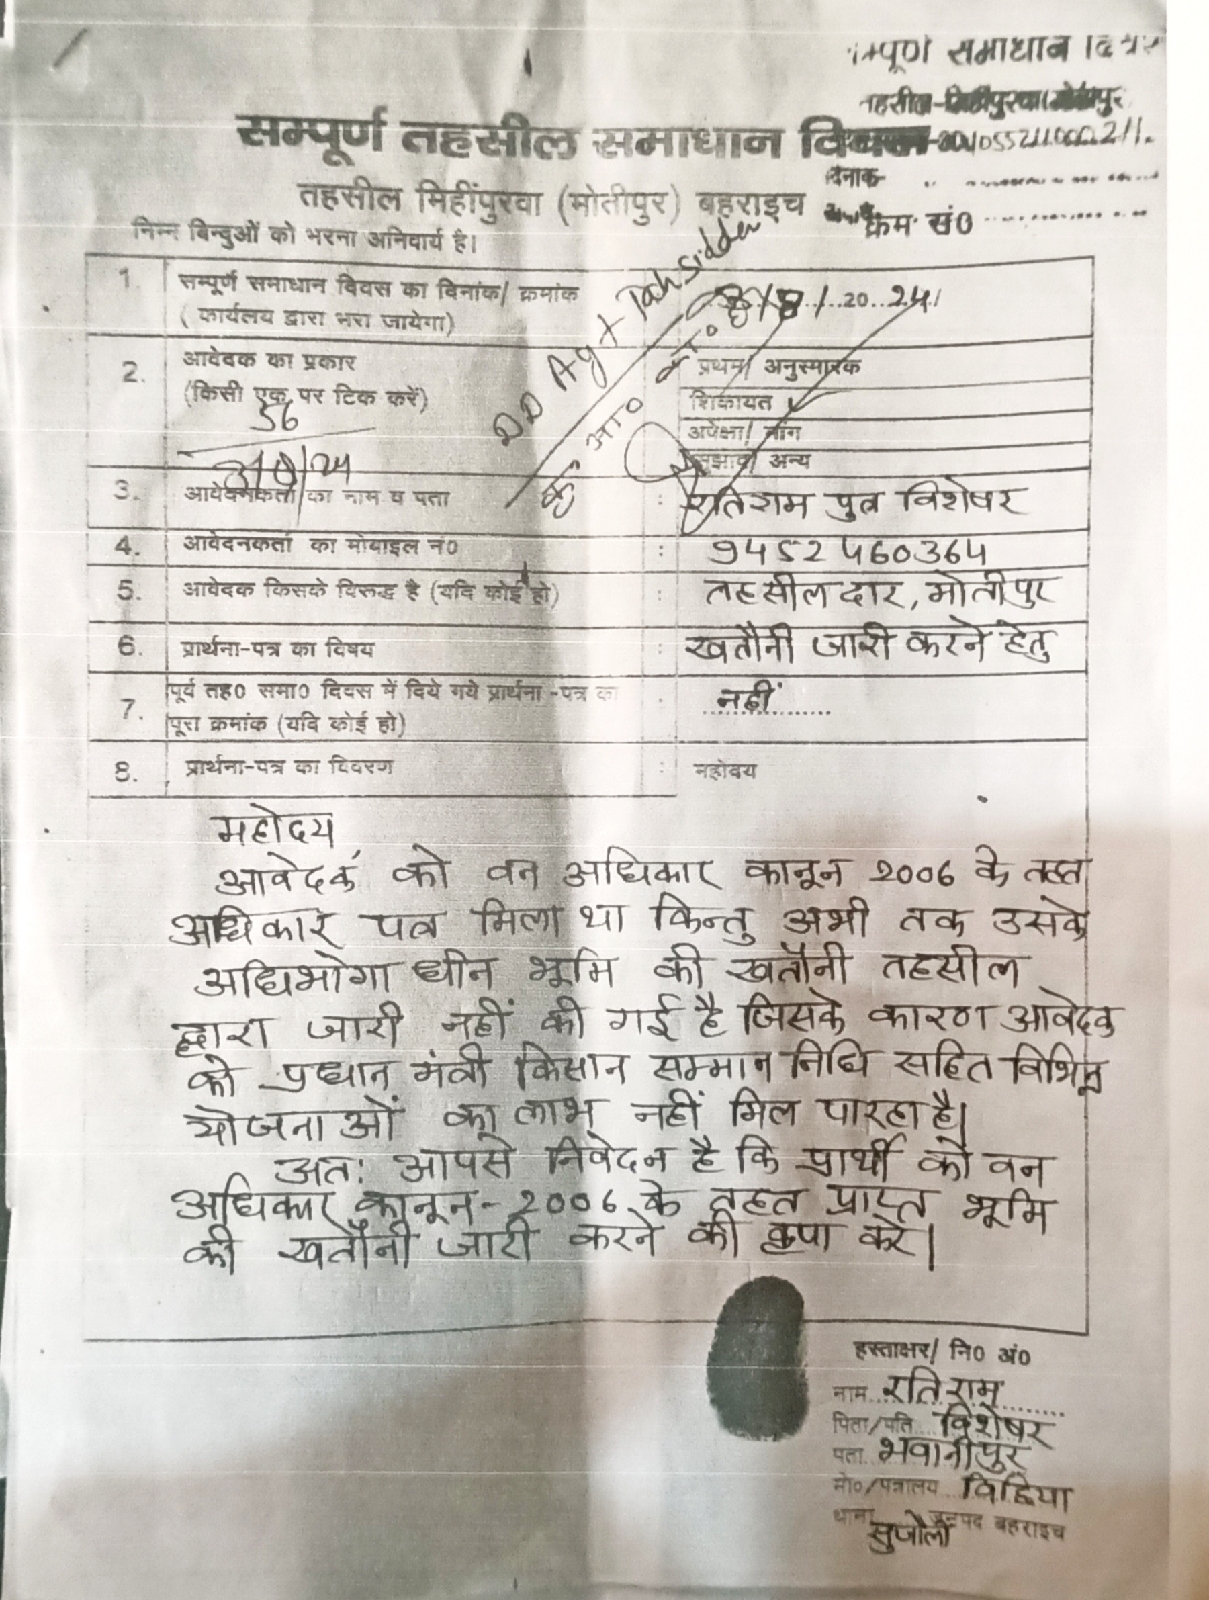 सम्पूर्ण समाधान दिवस
तहसील-मिहींपुरवा/मोतीपुर
सम्पूर्ण तहसील समाधान दिवस
तहसील मिहींपुरवा (मोतीपुर) बहराइच
दिनांक
क्रम सं०
निम्न बिन्दुओं को भरना अनिवार्य है।
1. सम्पूर्ण समाधान दिवस का दिनांक/ क्रमांक
( कार्यलय द्वारा भरा जायेगा)
20..24
DD Agt Tahsildar
2. आवेदक का प्रकार
(किसी एक पर टिक करें)
प्रथम/ अनुस्मारक
शिकायत
अपेक्षा/ मांग
सुझाव/ अन्य
56
3. आवेदनकर्ता का नाम व पता : रतिराम पुत्र विशेषर
4. आवेदनकर्ता का मोबाइल नं० : 9452460364
5. आवेदक किसके विरूद्ध है (यदि कोई हो) : तहसीलदार, मोतीपुर
6. प्रार्थना-पत्र का विषय : खतौनी जारी करने हेतु
7. पूर्व तह० समा० दिवस में दिये गये प्रार्थना -पत्र का : नहीं
पूरा क्रमांक (यदि कोई हो)
8. प्रार्थना-पत्र का विवरण : महोदय
महोदय,
आवेदक को वन अधिकार कानून 2006 के तहत
अधिकार पत्र मिला था किन्तु अभी तक उसके
अधिभोगाधीन भूमि की खतौनी तहसील
द्वारा जारी नहीं की गई है जिसके कारण आवेदक
को प्रधान मंत्री किसान सम्मान निधि सहित विभिन्न
योजनाओं का लाभ नहीं मिल पा रहा है।
अतः आपसे निवेदन है कि प्रार्थी को वन
अधिकार कानून-2006 के तहत प्राप्त भूमि
की खतौनी जारी करने की कृपा करें।
हस्ताक्षर/ नि० अं०
नाम रतिराम
पिता/पति विशेषर
पता भवानीपुर
मो०/पत्रालय विछिया
थाना सुजौली जनपद बहराइच